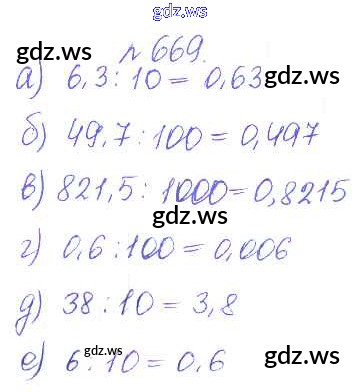 gdz.ws
gdz.ws № 669.
а) 6,3 : 10 = 0,63 gdz.ws
б) 49,7 : 100 = 0,497
в) 821,5 : 1000 = 0,8215
gdz.ws
г) 0,6 : 100 = 0,006
д) 38 : 10 = 3,8
е) 6 : 10 = 0,6
gdz.ws gdz.ws